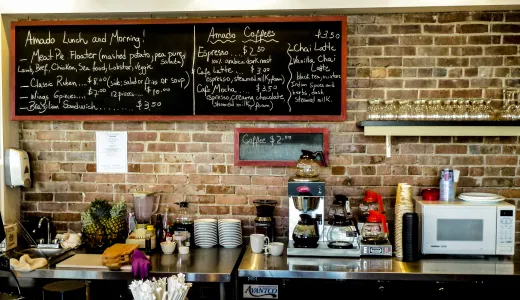 Amado Lunch and Morning!
Meat Pie Floater (mashed potato, pea puree
Lamb, Beef, Chicken, Sea food, Lobster, Veggie
Salada)
Classic Ruben...$8.00 (sub: salad or fries or soup)
Wings 6 pieces... 12 pieces... $10.00
$7.00
Brazilian Sandwich...$3.50
Amado Coffees
Espresso....$2.50
100% arabica dark roast
Cafe Latte... $3.00
espresso, steamed milk, foam
Cafe Mocha $3.50
espresso, creamy, chocolate
steamed milk, foam
$3.50
Chai Latte
Vanilla Chai
Latte
black tea, mixture
Indian spices and
herbs, dash
steamed milk.
Coffee $2.00
AVANTCO